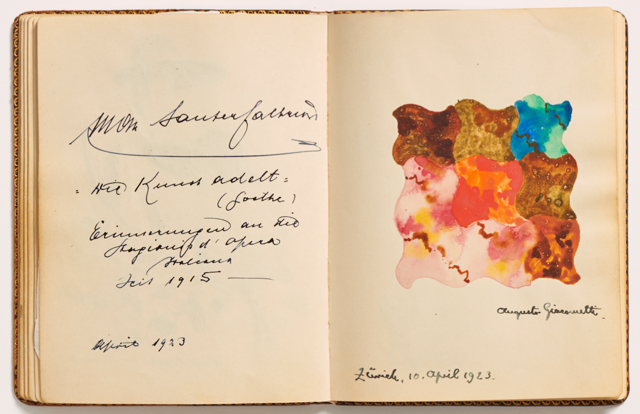 "Die Kunst adelt"
(Goethe)
Erinnerungen an die
Stagioni d'opera
Italiana
seit 1915 —
April 1923
Augusto Giacometti.
Zürich, 10. April 1923.